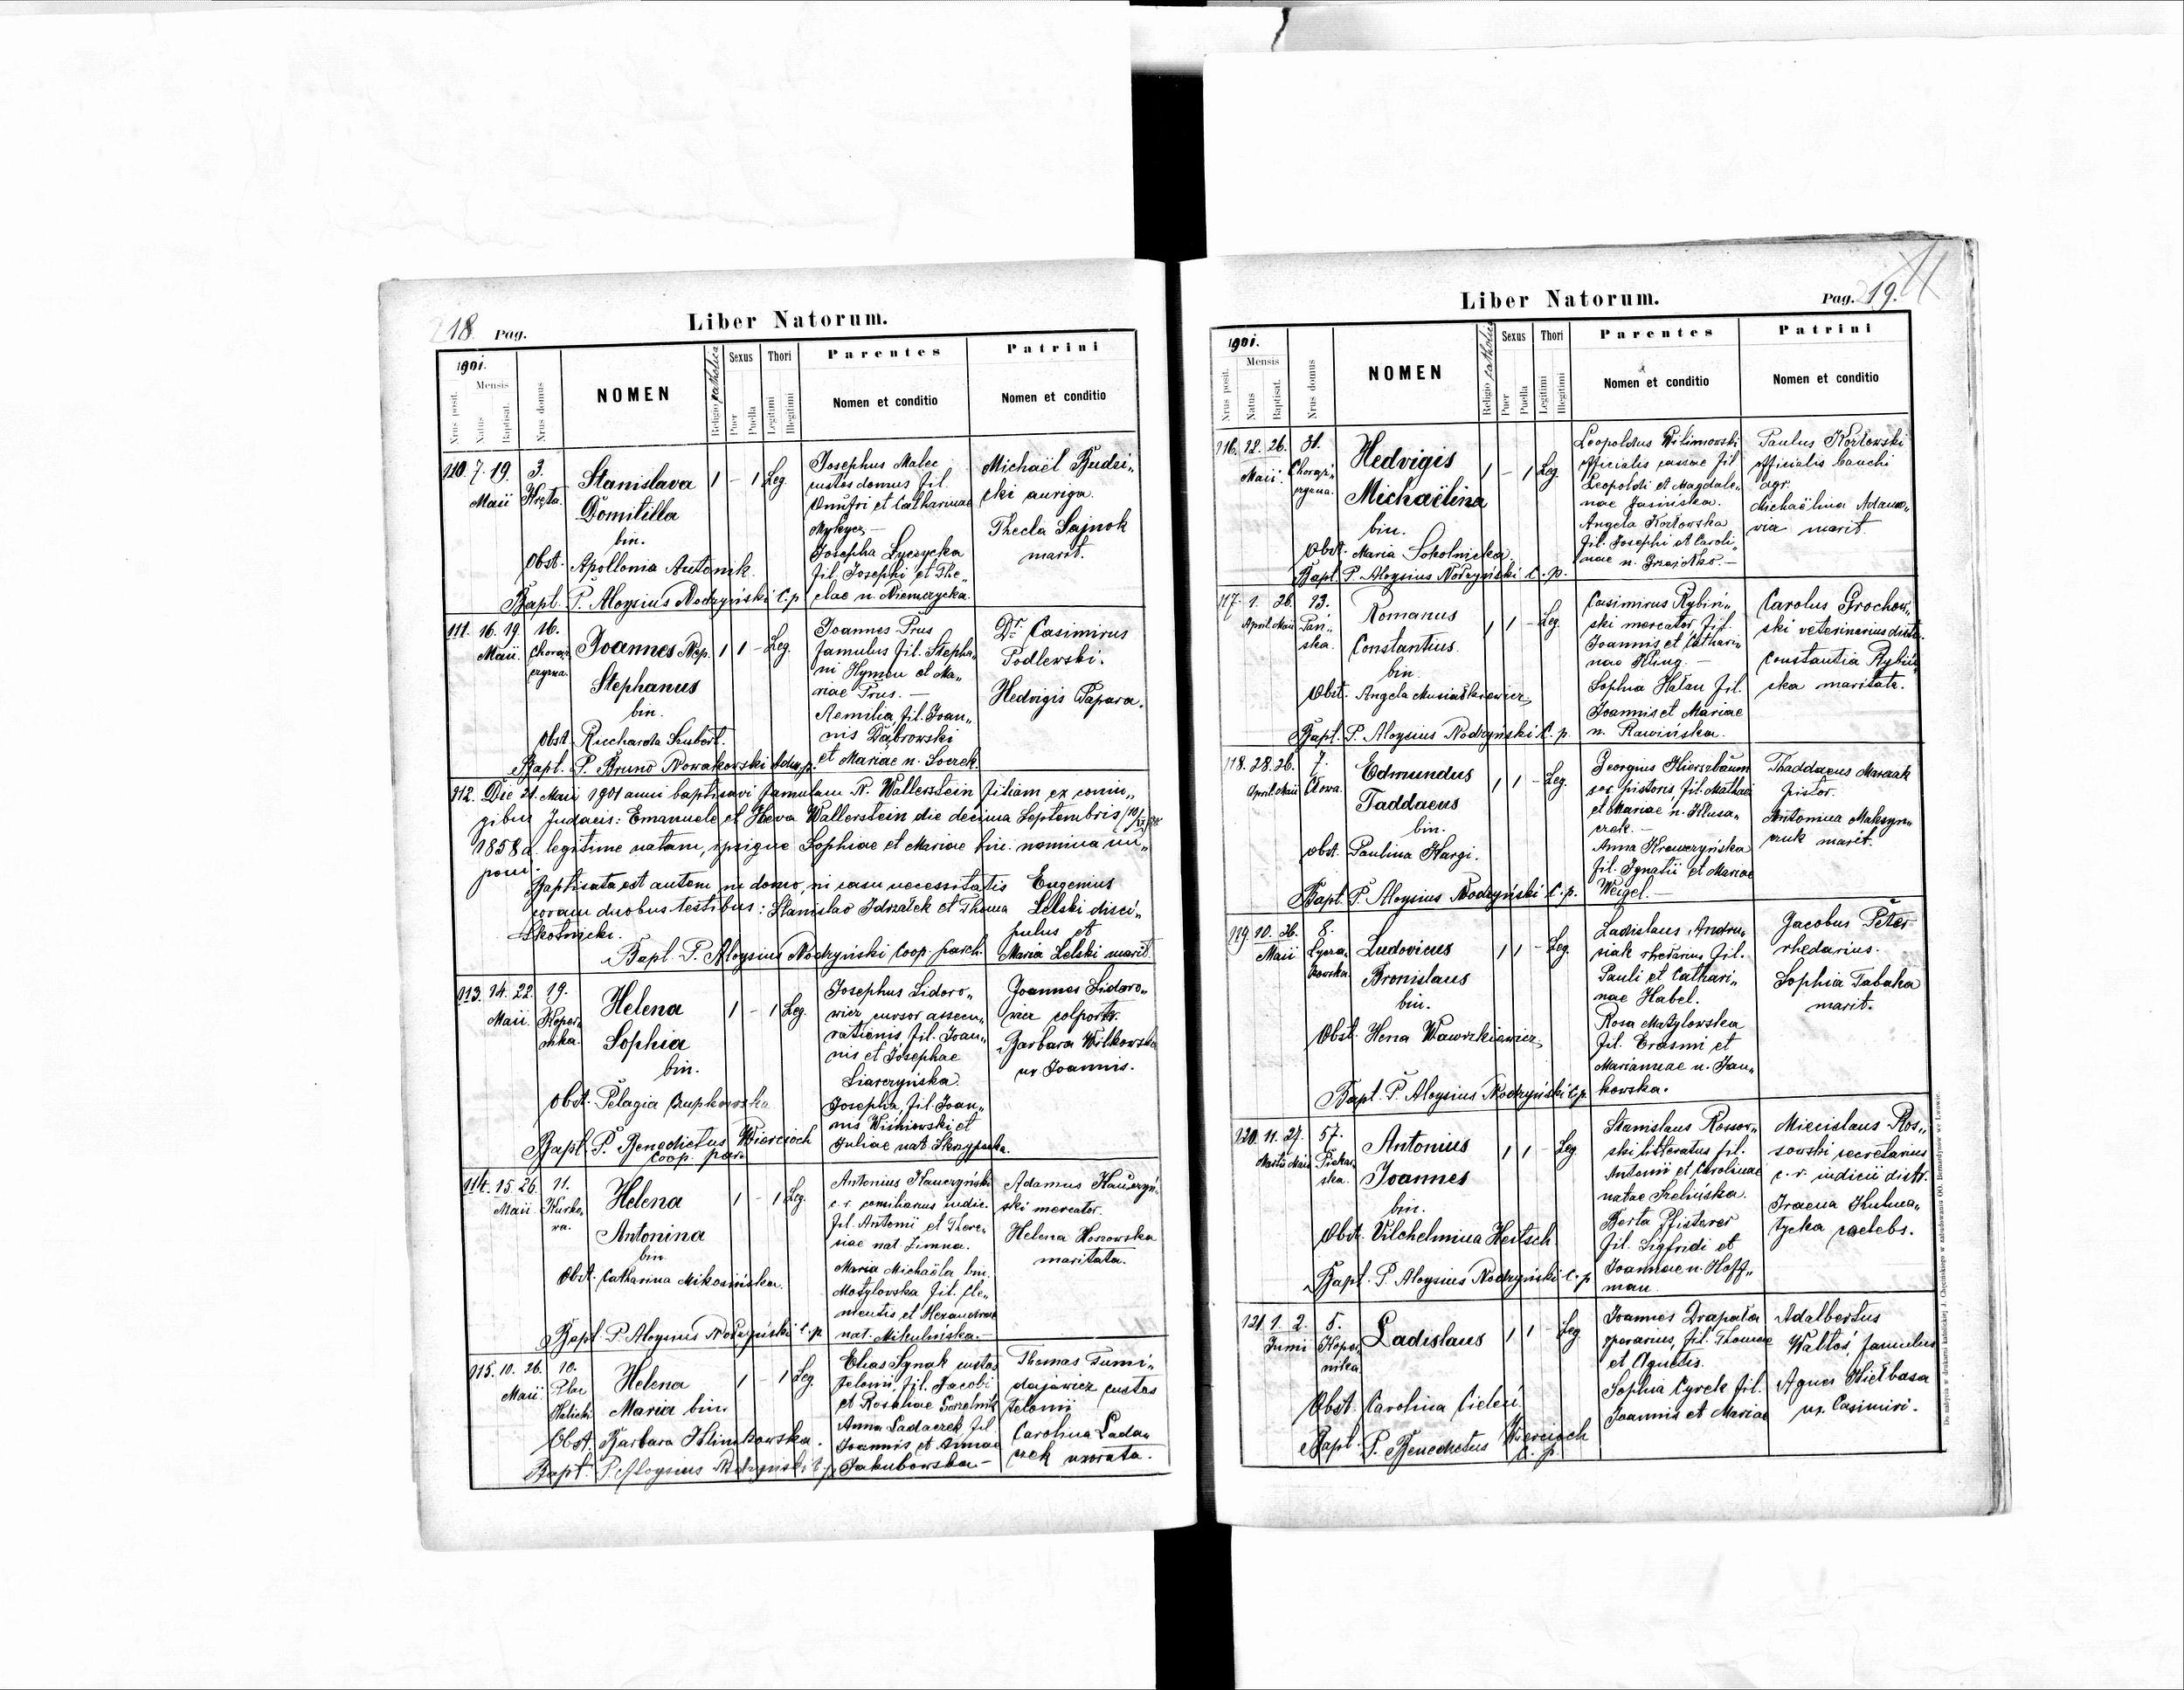 18 Pag.
Liber Natorum.
1901.
Nrus posit.
Mensis
Natus
Baptisat.
Nrus domus
NOMEN
Religio catholica
Sexus
Puer
Puella
Thori
Legitimi
Illegitimi
Parentes
Nomen et conditio
Patrini
Nomen et conditio
110. 7. 19. 3.
Maii
Stanislava 1 - 1 Leg.
Domitilla
bin.
Obst. Apollonia Antonik.
Bapt. P. Aloysius Nodzyński C. p.
Josephus Malec
custos domus fil.
Onufri et Catharinae
Mykycz —
Josepha Łyczycka
fil. Josephi et The„
clae n. Niemczycka.
Michaël Budzi„
cki auriga.
Thecla Sajnok
marit.
111. 16. 19. 16.
Maii.
Joannes Nep. 1 1 - Leg.
Stephanus
bin.
Obst. Rucharda Szubert.
Bapt. P. Bruno Nowakowski
Joannes Prus
famulus fil. Stepha„
ni Hymon et Ma„
riae Prus. —
Aemilia, fil. Joan„
nis Dąbrowski
et Mariae n. Sorek.
Dr. Casimirus
Podlewski.
Hedvigis Papara.
112. Die 21. Maii 1901 anni baptisavi famulam N. Wallerstein filiam ex coniu„
gibus Judaeis: Emanuele et Heva Wallerstein die decima Septembris
1858 a. legitime natam, ipsique Sophiae et Mariae bin. nomina im„
posui.
Baptisata est autem in domo, in casu necessitatis
coram duobus testibus: Stanislao Idziałek et Thoma
Skotnicki.
Bapt. P. Aloysius Nodzyński Coop. paroch.
Eugenius
Lelski disci„
pulus et
Maria Lelski marit.
113. 14. 22. 19.
Maii. Koper„
nika.
Helena 1 - 1 Leg.
Sophia
bin.
Obst. Pelagia Rupkowska
Bapt. P. Benedictus Wiercioch
Coop. par.
Josephus Sidoro„
wicz cursor assecu„
rationis, fil. Joan„
nis et Josephae
Siarczyńska.
Josepha, fil. Joan„
nis Wiśniowski et
Juliae nat. Skrzypecka.
Joannes Sidoro„
wicz colport.
Barbara Witkowska
ux. Joannis.
114. 15. 26. 11.
Maii. Kurko„
wa.
Helena 1 - 1 Leg.
Antonina
bin.
Obst. Catharina Mikosińska.
Bapt. P. Aloysius Nodzyński C. p.
Antonius Hauczyński
c. r. consiliarius iudic.
fil. Antonii et There„
siae nat. Zimna.
Maria Michaëla bin.
Motylowska fil. Cle„
mentis et Alexandrae
nat. Mikulińska. —
Adamus Hauczyń„
ski mercator.
Helena Hoszowska
maritata.
115. 10. 26. 10.
Maii. Plac
Halicki
Helena 1 - 1 Leg.
Maria bin.
Obst. Barbara Klimkowska.
Bapt. P. Aloysius Nodzyński C. p.
Elias Synak custos
telonii, fil. Jacobi
et Rosaliae
Anna Ladaczek fil.
Joannis et Annae
Jakubowska —
Thomas Tumi„
dajewicz custos
telonii
Carolina Lada„
czek uxorata.
Liber Natorum.
Pag. 19.
1901.
Nrus posit.
Mensis
Natus
Baptisat.
Nrus domus
NOMEN
Religio catholica
Sexus
Puer
Puella
Thori
Legitimi
Illegitimi
Parentes
Nomen et conditio
Patrini
Nomen et conditio
116. 12. 26. 31.
Maii. Chorąż„
czyzna.
Hedvigis 1 - 1 Leg.
Michaëlina
bin.
Obst. Maria Sokolnicka.
Bapt. P. Aloysius Nodzyński C. p.
Leopoldus Wilimowski
officialis cassae fil.
Leopoldi et Magdale„
nae Jasińska.
Angela Kozłowska
fil. Josephi et Caroli„
nae n. —
Paulus Kozłowski
officialis banchi
agr.
Michaëlina Adamo„
wia marit.
117. 1. 26. 13.
April. Maii Pań„
ska.
Romanus 1 1 - Leg.
Constantius
bin.
Obst. Angela Musiałkiewicz
Bapt. P. Aloysius Nodzyński C. p.
Casimirus Rybiń„
ski mercator, fil.
Joannis et Cathari„
nae Kling. —
Sophia Hałan fil.
Joannis et Mariae
n. Rawińska.
Carolus Grochow„
ski veterinarius distr.
Constantia Rybiń„
ska maritata.
118. 28. 26. 7.
April. Maii
Edmundus 1 1 - Leg.
Taddaeus
bin.
Obst. Paulina Hargi.
Bapt. P. Aloysius Nodzyński C. p.
Georgius Hierszbaum
soc. pistoris fil. Mathaei
et Mariae n. Klusa„
czek. —
Anna Krawczyńska
fil. Ignatii et Mariae
Weigel. —
Thaddaeus Marzak
pistor.
Antonina Maksym„
czuk marit.
119. 10. 26. 8.
Maii Łycza„
kowska.
Ludovicus 1 1 - Leg.
Bronislaus
bin.
Obst. Hena Wawrzkiewicz
Bapt. P. Aloysius Nodzyński C. p.
Ladislaus Andru„
siak rhedarius, fil.
Pauli et Cathari„
nae Habel.
Rosa Matylowska
fil. Erasmi et
Mariannae n. Jan„
kowska.
Jacobus Peter
rhedarius.
Sophia Tabaka
marit.
120. 11. 27. 57.
Martii Maii Piekar„
ska.
Antonius 1 1 - Leg.
Joannes
bin.
Obst. Vilchelmina Hertsch.
Bapt. P. Aloysius Nodzyński C. p.
Stanislaus Rossow„
ski litteratus fil.
Antonii et Carolinae
natae Szelińska.
Berta Pfisterer
fil. Sigfridi et
Joannae n. Hoff„
man.
Miecislaus Ros„
sowski secretarius
c. r. iudicii distr.
Iraena Kulma„
tycka caelebs.
121. 1. 2. 5.
Junii Koper„
nika.
Ladislaus 1 1 - Leg.
Obst. Carolina Cieleń.
Bapt. P. Benedictus Wiercioch
C. p.
Joannes Drapała
operarius, fil. Thomae
et Agnetis.
Sophia Cyrek fil.
Joannis et Mariae
Adalbertus
Waltoś, famulus
Agnes Kiełbasa
ux. Casimiri.
Do nabycia w drukarni katolickiej J. Chęcińskiego w zabudowaniu OO. Bernardynów we Lwowie.